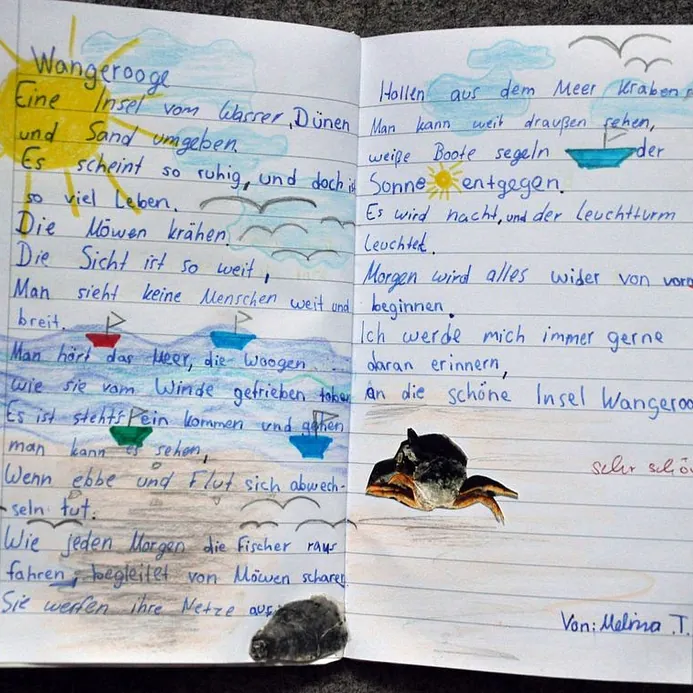 Wangerooge
Eine Insel vom Wasser, Dünen
und Sand umgeben.
Es scheint so ruhig, und doch is
so viel Leben.
Die Möwen krähen.
Die Sicht ist so weit,
Man sieht keine Menschen weit und
breit.
Man hört das Meer, die Woogen
wie sie vom Winde getrieben toben
Es ist stehts ein kommen und gehen
man kann es sehen,
Wenn ebbe und Flut sich abwech-
seln tut.
Wie jeden Morgen die Fischer raus
fahren, begleitet von Möwen scharen
Sie werfen ihre Netze aus
Hollen aus dem Meer Kraben
Man kann weit draußen sehen,
weiße Boote segeln der
Sonne entgegen.
Es wird nacht, und der Leuchtturm
leuchtet.
Morgen wird alles wider von vorn
beginnen.
Ich werde mich immer gerne
daran erinnern,
An die schöne Insel Wangeroo
sehr schö
Von: Melina .T.